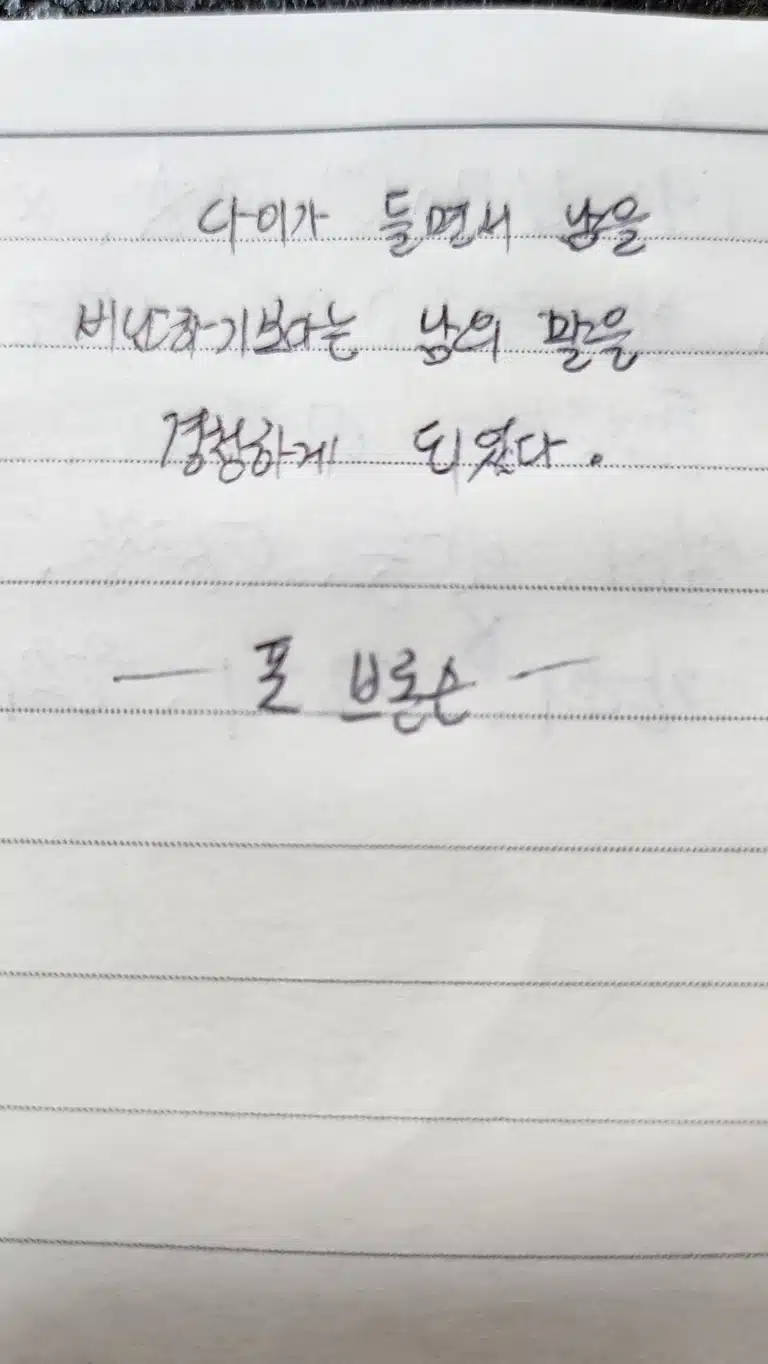 나이가 들면서 남을
비난하기보다는 남의 말을
경청하게 되었다.
- 포 브론슨 -